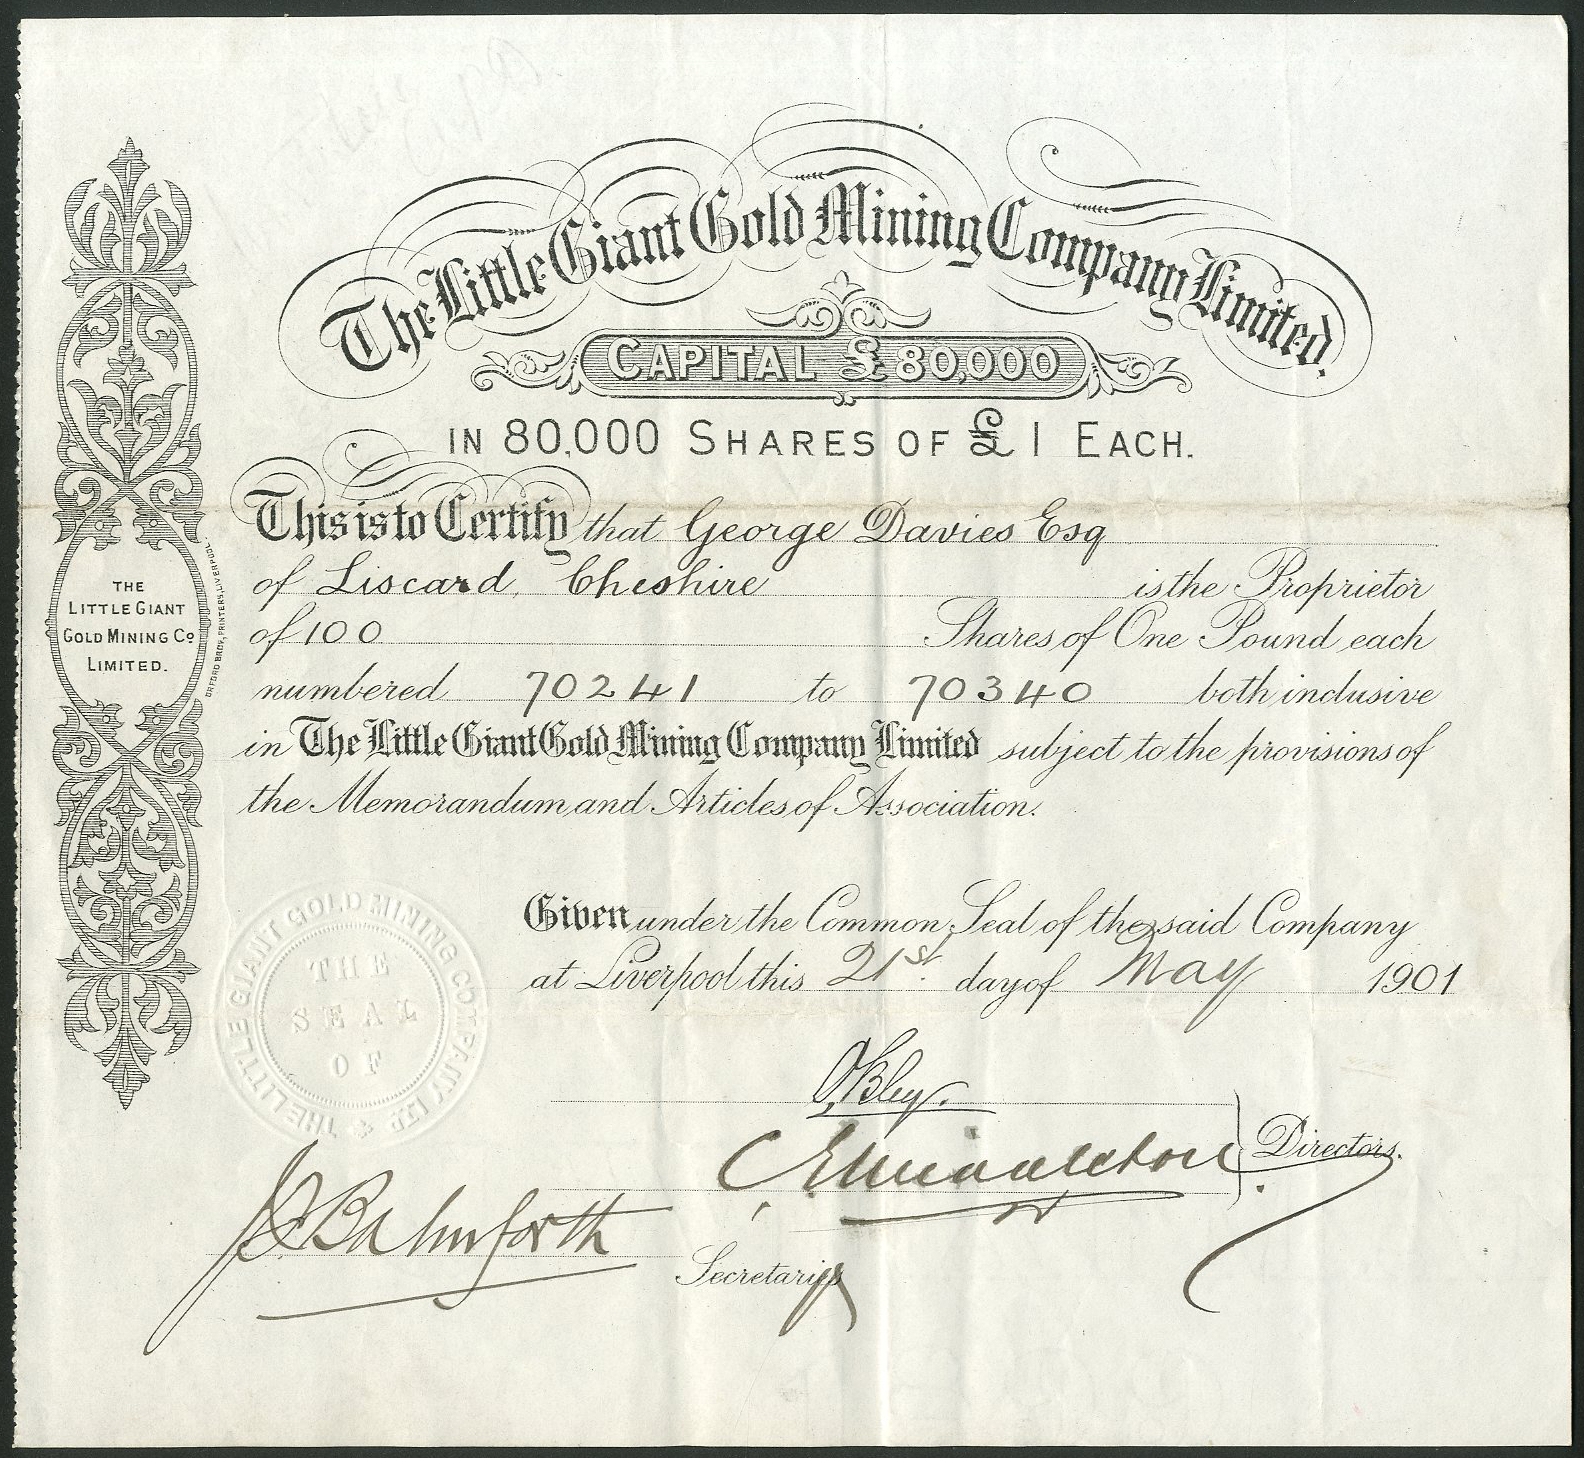 The Little Giant Gold Mining Company Limited.
CAPITAL £80,000
IN 80,000 SHARES OF £1 EACH.
This is to Certify that George Davies Esq
of Liscard, Cheshire is the Proprietor
of 100 Shares of One Pound each
numbered 70241 to 70340 both inclusive
in The Little Giant Gold Mining Company Limited subject to the provisions of
the Memorandum and Articles of Association.
THE
LITTLE GIANT
GOLD MINING Co
LIMITED.
ORFORD BROS, PRINTERS, LIVERPOOL
Given under the Common Seal of the said Company
at Liverpool this 21st. day of May 1901
THE LITTLE GIANT GOLD MINING COMPANY LTD
THE
SEAL
OF
C E Middleton
Directors.
J Bamforth
Secretary